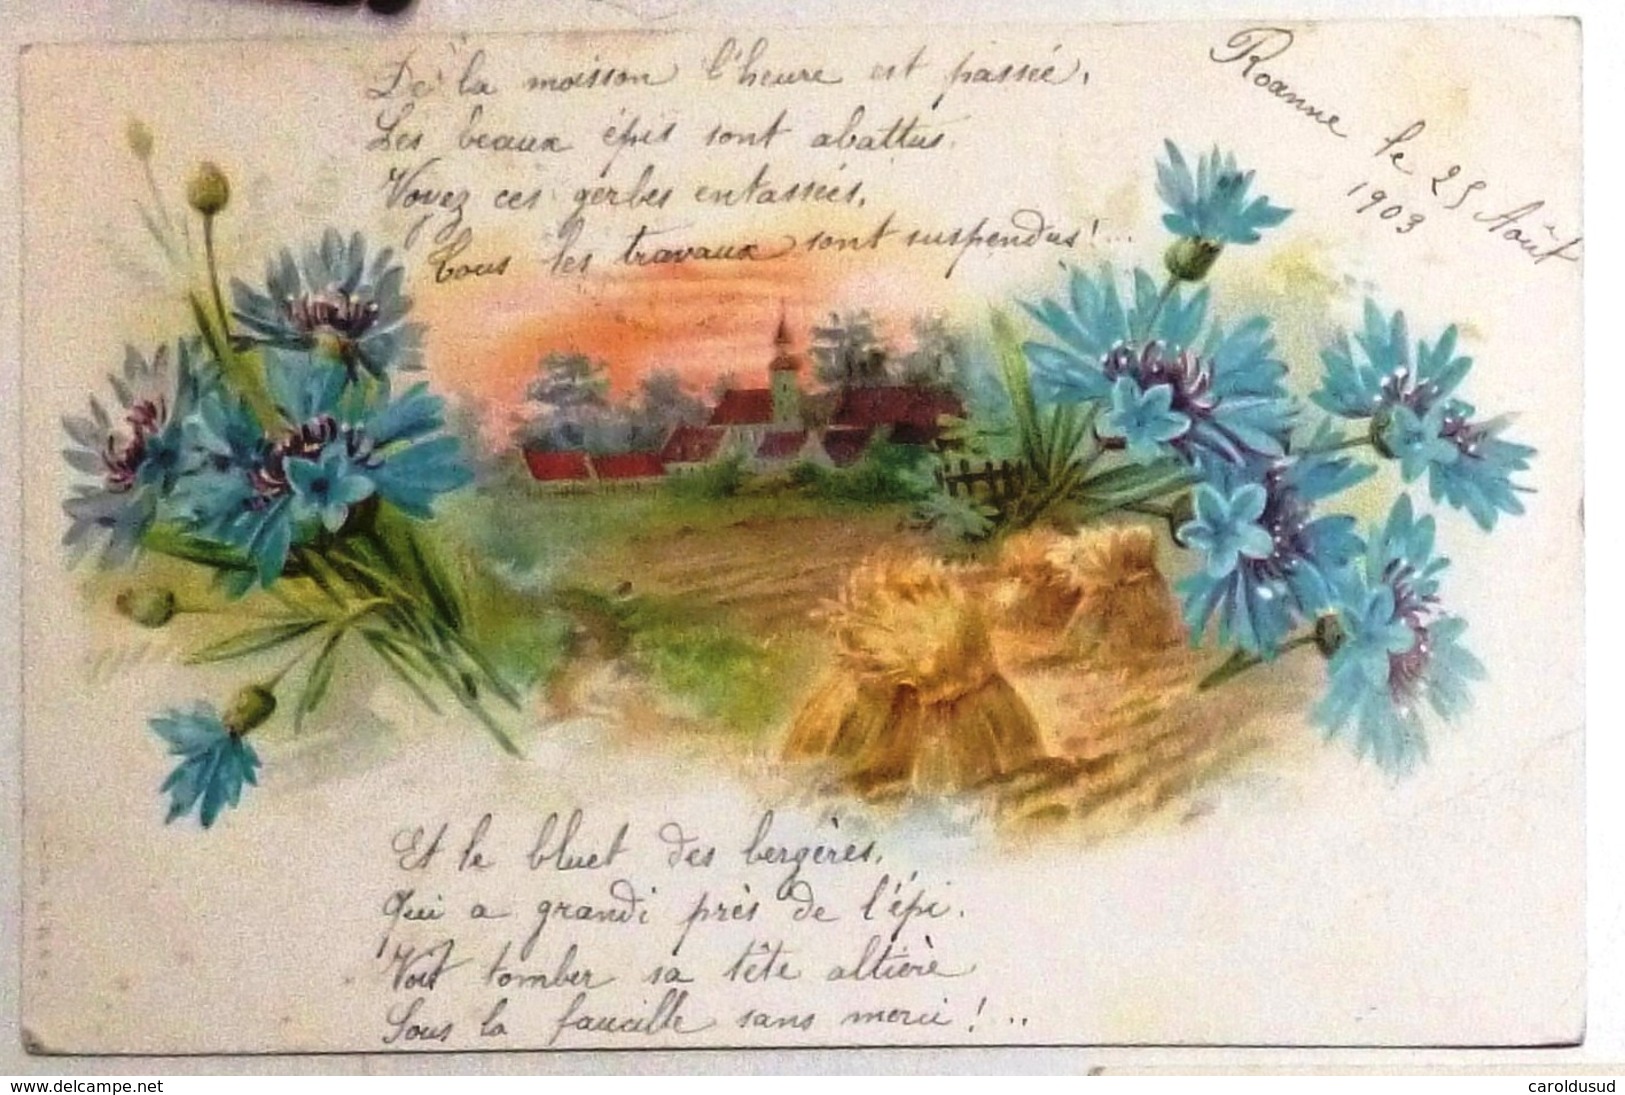 De la moisson l'heure est passée,
Les beaux épis sont abattus.
Voyez ces gerbes entassées,
Tous les travaux sont suspendus!...
Roanne le 25 Août
1903
Et le bluet des bergères,
Qui a grandi près de l'épi.
Voit tomber sa tête altière
Sous la faucille sans merci!...
www.delcampe.net
caroldusud